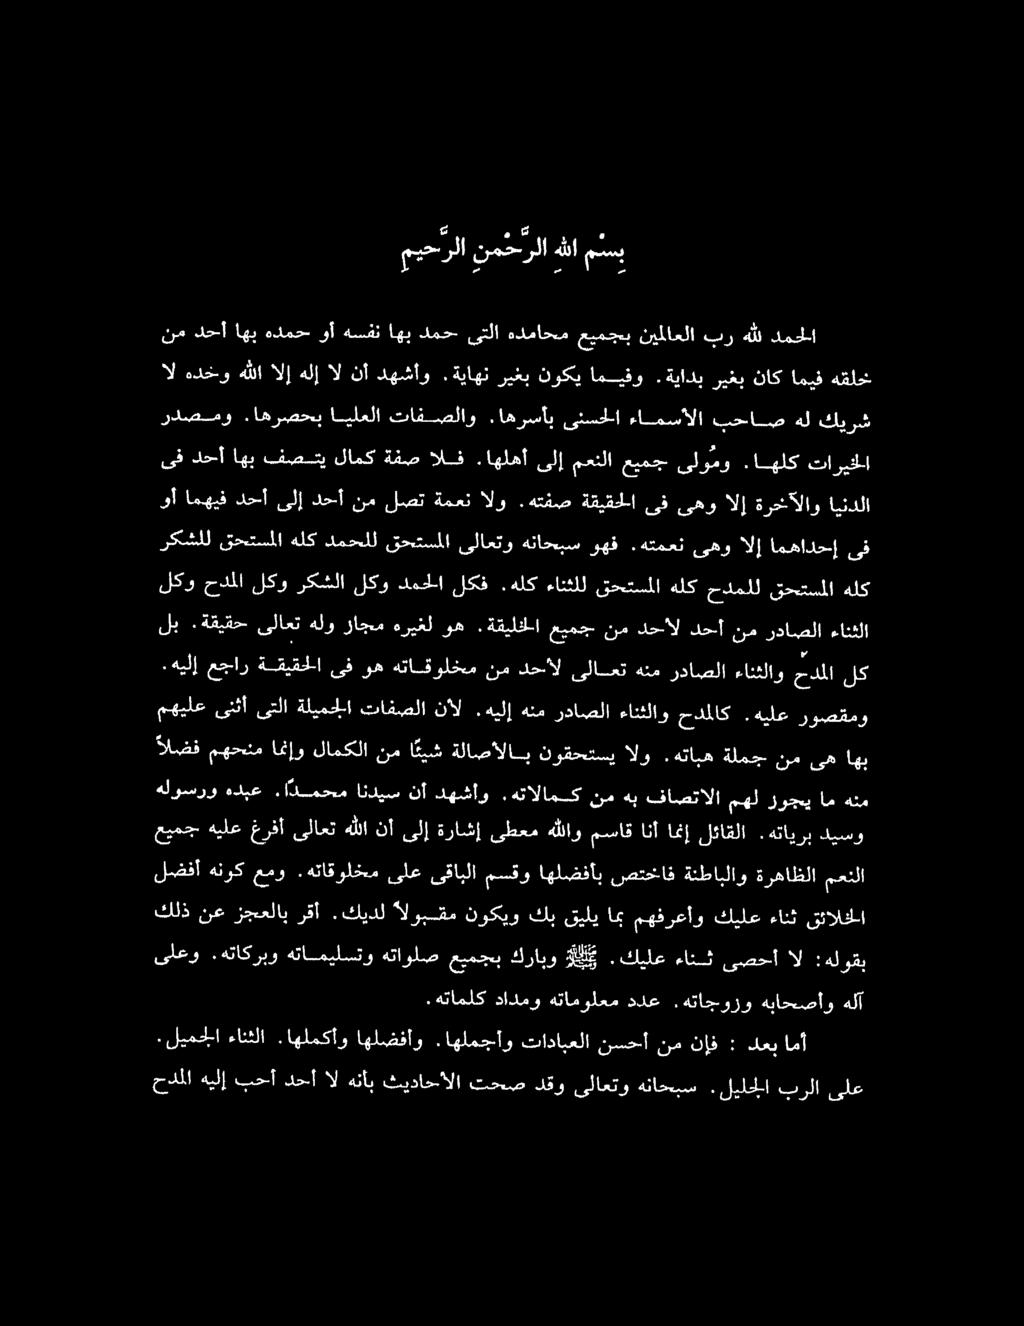 بِسْمِ اللهِ الرَّحْمنِ الرَّحيمِ
الحمد لله رب العالمين بجميع محامده التى حمد بها نفسه أو حمده بها أحد من
خلقه فيما كان بغير بداية. وفيما يكون بغير نهاية. وأشهد أن لا إله إلا الله وحده لا
شريك له صاحب الأسماء الحسنى بأسرها. والصفات العليا بحصرها. ومصدر
الخيرات كلها. ومُولى جميع النعم إلى أهلها. فلا صفة كمال يتصف بها أحد فى
الدنيا والآخرة إلا وهى فى الحقيقة صفته. ولا نعمة تصل من أحد إلى أحد فيهما أو
فى إحداهما إلا وهى نعمته. فهو سبحانه وتعالى المستحق للحمد كله المستحق للشكر
كله المستحق للمدح كله المستحق للثناء كله. فكل الحمد وكل الشكر وكل المدح وكل
الثناء الصادر من أحد لأحد من جميع الخليقة. هو لغيره مجاز وله تعالى حقيقة. بل
كل المدح والثناء الصادر منه تعالى لأحد من مخلوقاته هو فى الحقيقة راجع إليه.
ومقصور عليه. كالمدح والثناء الصادر منه إليه. لأن الصفات الجميلة التى أثنى عليهم
بها هى من جملة هباته. ولا يستحقون بالأصالة شيئًا من الكمال وإنما منحهم فضلاً
منه ما يجوز لهم الاتصاف به من كمالاته. وأشهد أن سيدنا محمدًا. عبده ورسوله
وسيد برياته. القائل إنما أنا قاسم والله معطى إشارة إلى أن الله تعالى أفرغ عليه جميع
النعم الظاهرة والباطنة فاختص بأفضلها وقسم الباقى على مخلوقاته. ومع كونه أفضل
الخلائق ثناء عليك وأعرفهم بما يليق بك ويكون مقبولاً لديك. أقر بالعجز عن ذلك
بقوله: لا أحصى ثناء عليك. ﷺ وبارك بجميع صلواته وتسليماته وبركاته. وعلى
آله وأصحابه وزوجاته. عدد معلوماته ومداد كلماته.
أما بعد : فإن من أحسن العبادات وأجملها. وأفضلها وأكملها. الثناء الجميل.
على الرب الجليل. سبحانه وتعالى وقد صحت الأحاديث بأنه لا أحد أحب إليه المدح